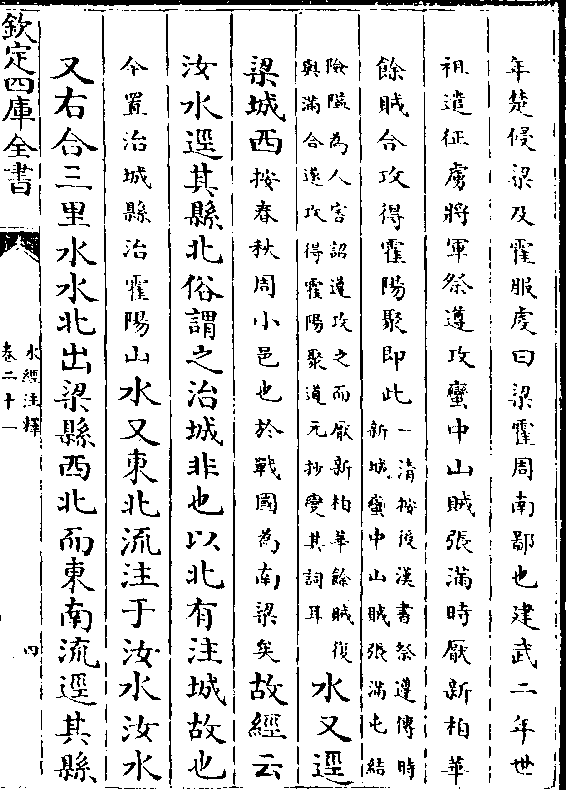 年楚侵梁及霍服䖍曰梁霍周南鄙也建武二年世
祖遣征虜將軍祭遵攻蠻中山賊張滿時厭新柏華
餘賊合攻得霍陽聚即此一清按後漢書祭遵傳時
新城蠻中山賊張滿屯結
險隘為人害詔遵攻之而厭新柏華餘賊復
與滿合遂攻得霍陽聚道元抄變其詞耳水又逕
梁城西按春秋周小邑也於戰國為南梁矣故經云
汝水逕其縣北俗謂之治城非也以北有注城故也
今置治城縣治霍陽山水又東北流注于汝水汝水
又右合三里水水北出梁縣西北而東南流逕其縣
欽定四庫全書
水經注釋
卷二十一
四